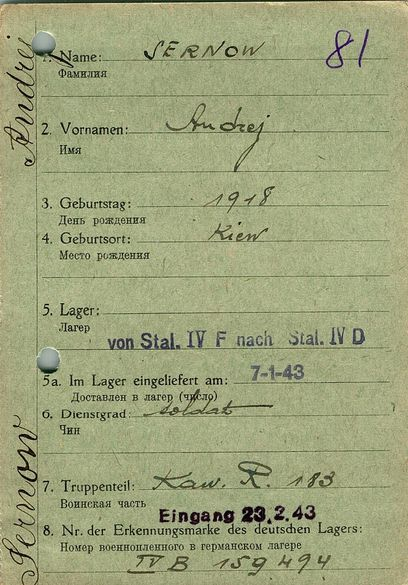 Andrej
Sernow
81
1. Name: SERNOW
Фамилия
2. Vornamen: Andrej
Имя
3. Geburtstag: 1918
День рождения
4. Geburtsort: Kiew
Место рождения
5. Lager:
Лагер
von Stal. IV F nach Stal. IV D
5a. Im Lager eingeliefert am: 7-1-43
Доставлен в лагер (число)
6. Dienstgrad: soldat
Чин
7. Truppenteil: Kaw. R. 183
Воинская часть
Eingang 23.2.43
8. Nr. der Erkennungsmarke des deutschen Lagers:
Номер военнопленного в германском лагере
IV B 159494